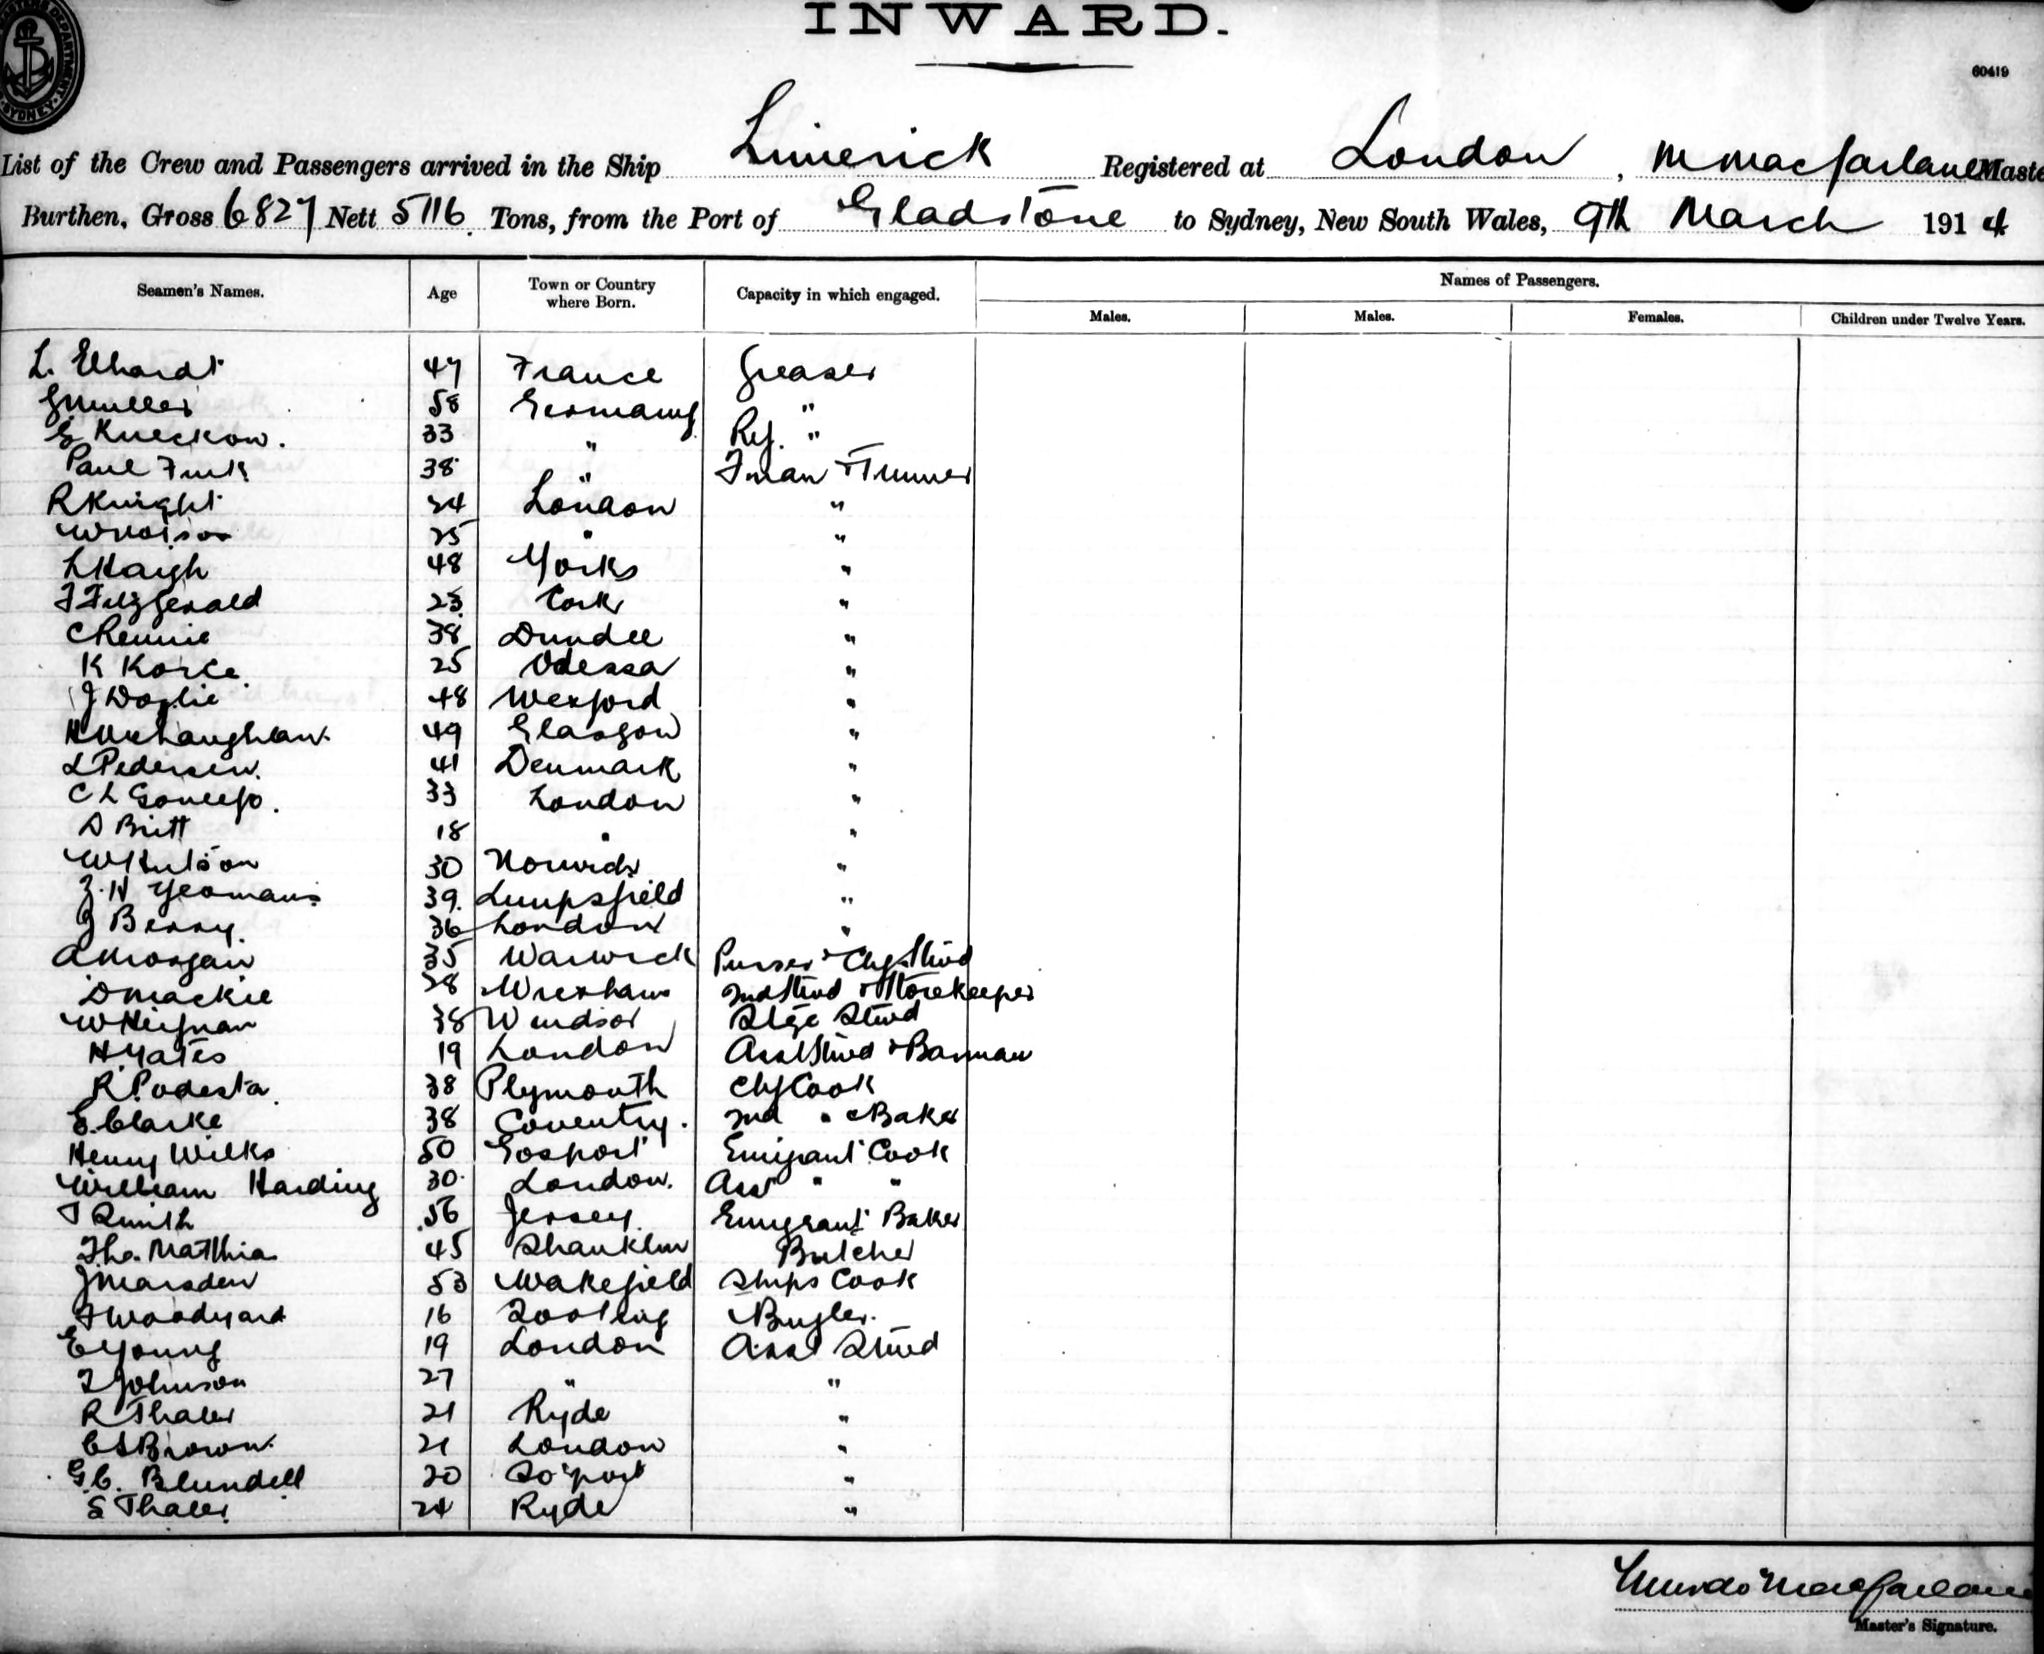 INWARD.
60419
SYDNEY
List of the Crew and Passengers arrived in the Ship Limerick Registered at London, M Macfarlane Maste
Burthen, Gross 6827 Nett 5116 Tons, from the Port of Gladstone to Sydney, New South Wales, 9th March 1914
Names of Passengers.
Seamen's Names. Age Town or Country where Born. Capacity in which engaged. Males. Males. Females. Children under Twelve Years.
L. Elhardt 47 France Greaser
G Muller 58 Germany "
G Kneckow. 33 " Ref. "
Paul Funk 38 " Fman & Trimmer
R Knight 24 London "
W 25 " "
L Haigh 48 Yorks "
F Fitzgerald 23 Cork "
C Rennie 38 Dundee "
K Korce. 25 Odessa "
J Doglie 48 Wexford "
49 Glasgow "
L Pedersen. 41 Denmark "
C L 33 London "
A Britt 18 " "
W Hutson 30 Norwich "
J. H Yeomans 39. Limpsfield "
J Berry. 36 London "
A Morgan 35 Warwick Purser & Chf Stwd
D Mackie 28 Wrexham 2nd Stwd & Storekeeper
W Heifnan 38 Windsor Stge Stwd
H Yates 19 London Asst Stwd & Barman
R. Podesta. 38 Plymouth Chf Cook
E. Clarke 38 Coventry. 2nd " & Baker
Henry Wilks 50 Gosport Emigrant Cook
William Harding 30. London. Asst " "
T Smith 56 Jersey. Emigrant Baker
Tho. Matthia 45 Shanklin Butcher
J Marsden 53 Wakefield Ships Cook
F Woodyard 16 Tooting Bugler.
E Young 19 London Asst Stwd
F Johnson 27 " "
R Thaler 21 Ryde "
C S Brown. 21 London "
G. C. Blundell 20 So'port "
S Thaler 24 Ryde "
Murdo Macfarlane
Master's Signature.